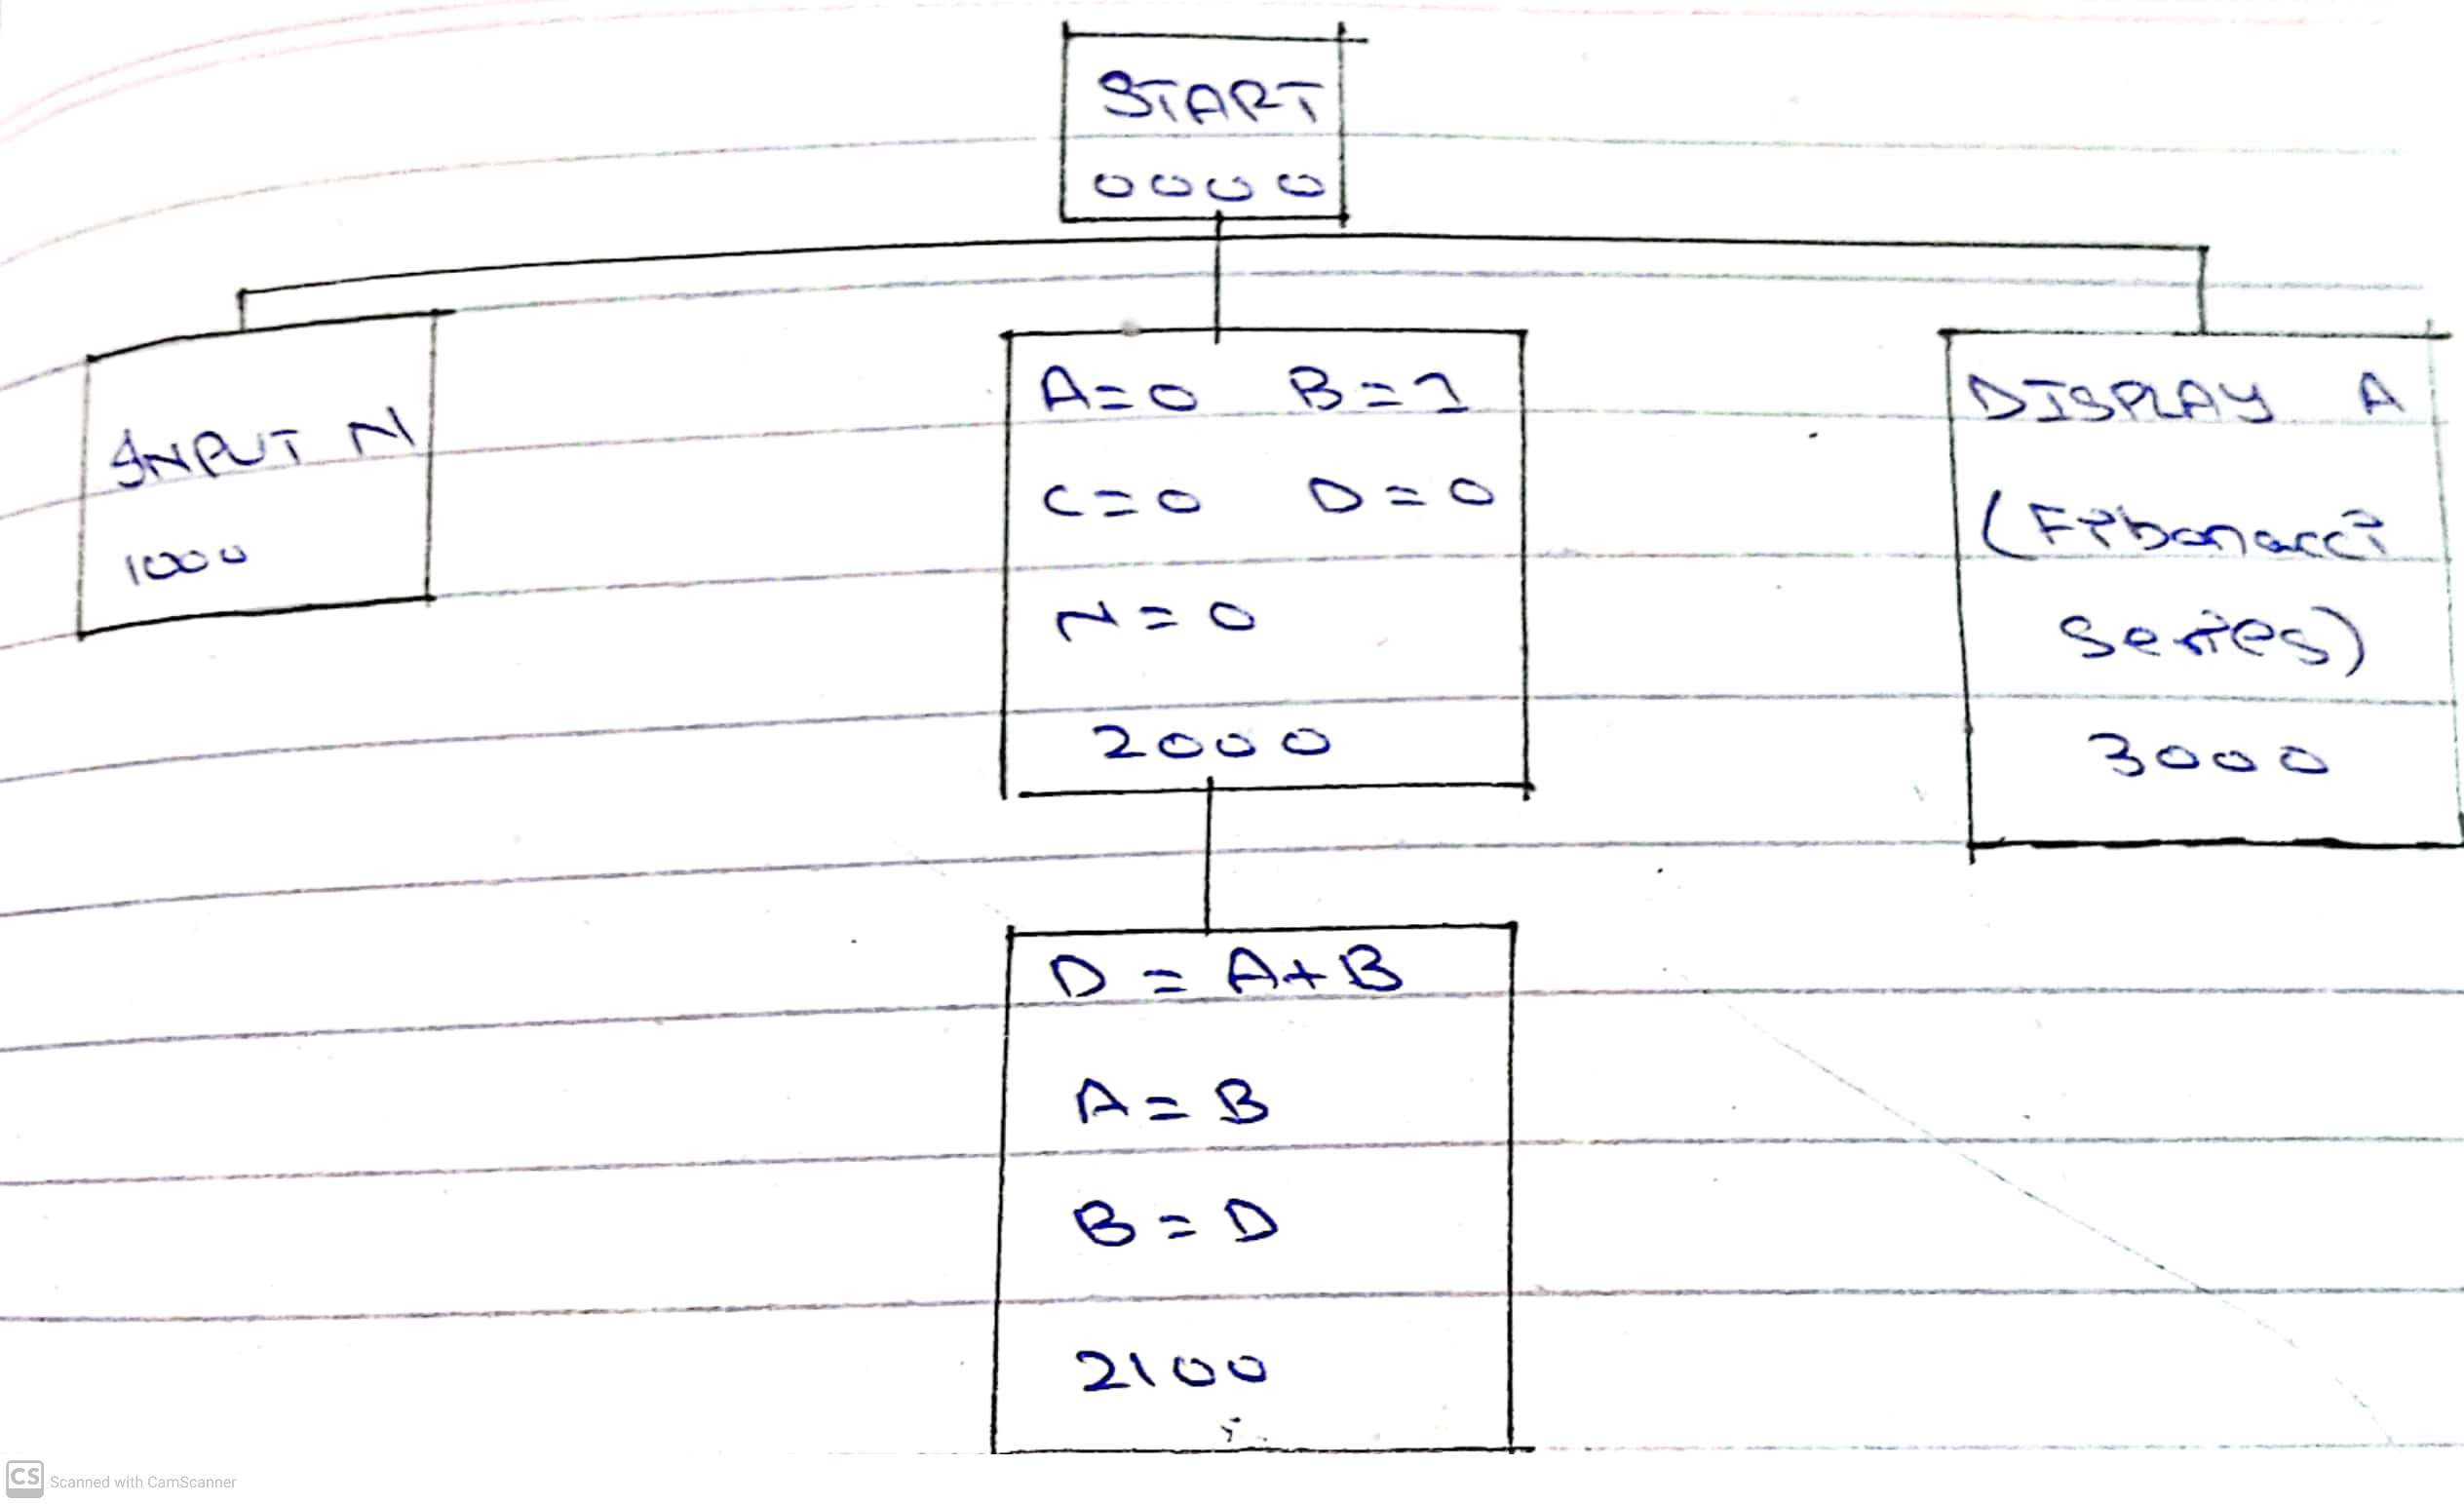 START
0000
INPUT N
1000
A=0 B=1
C=0 D=0
N=0
2000
DISPLAY A
(Fibonacci
Series)
3000
D = A+B
A = B
B = D
2100
CS Scanned with CamScanner